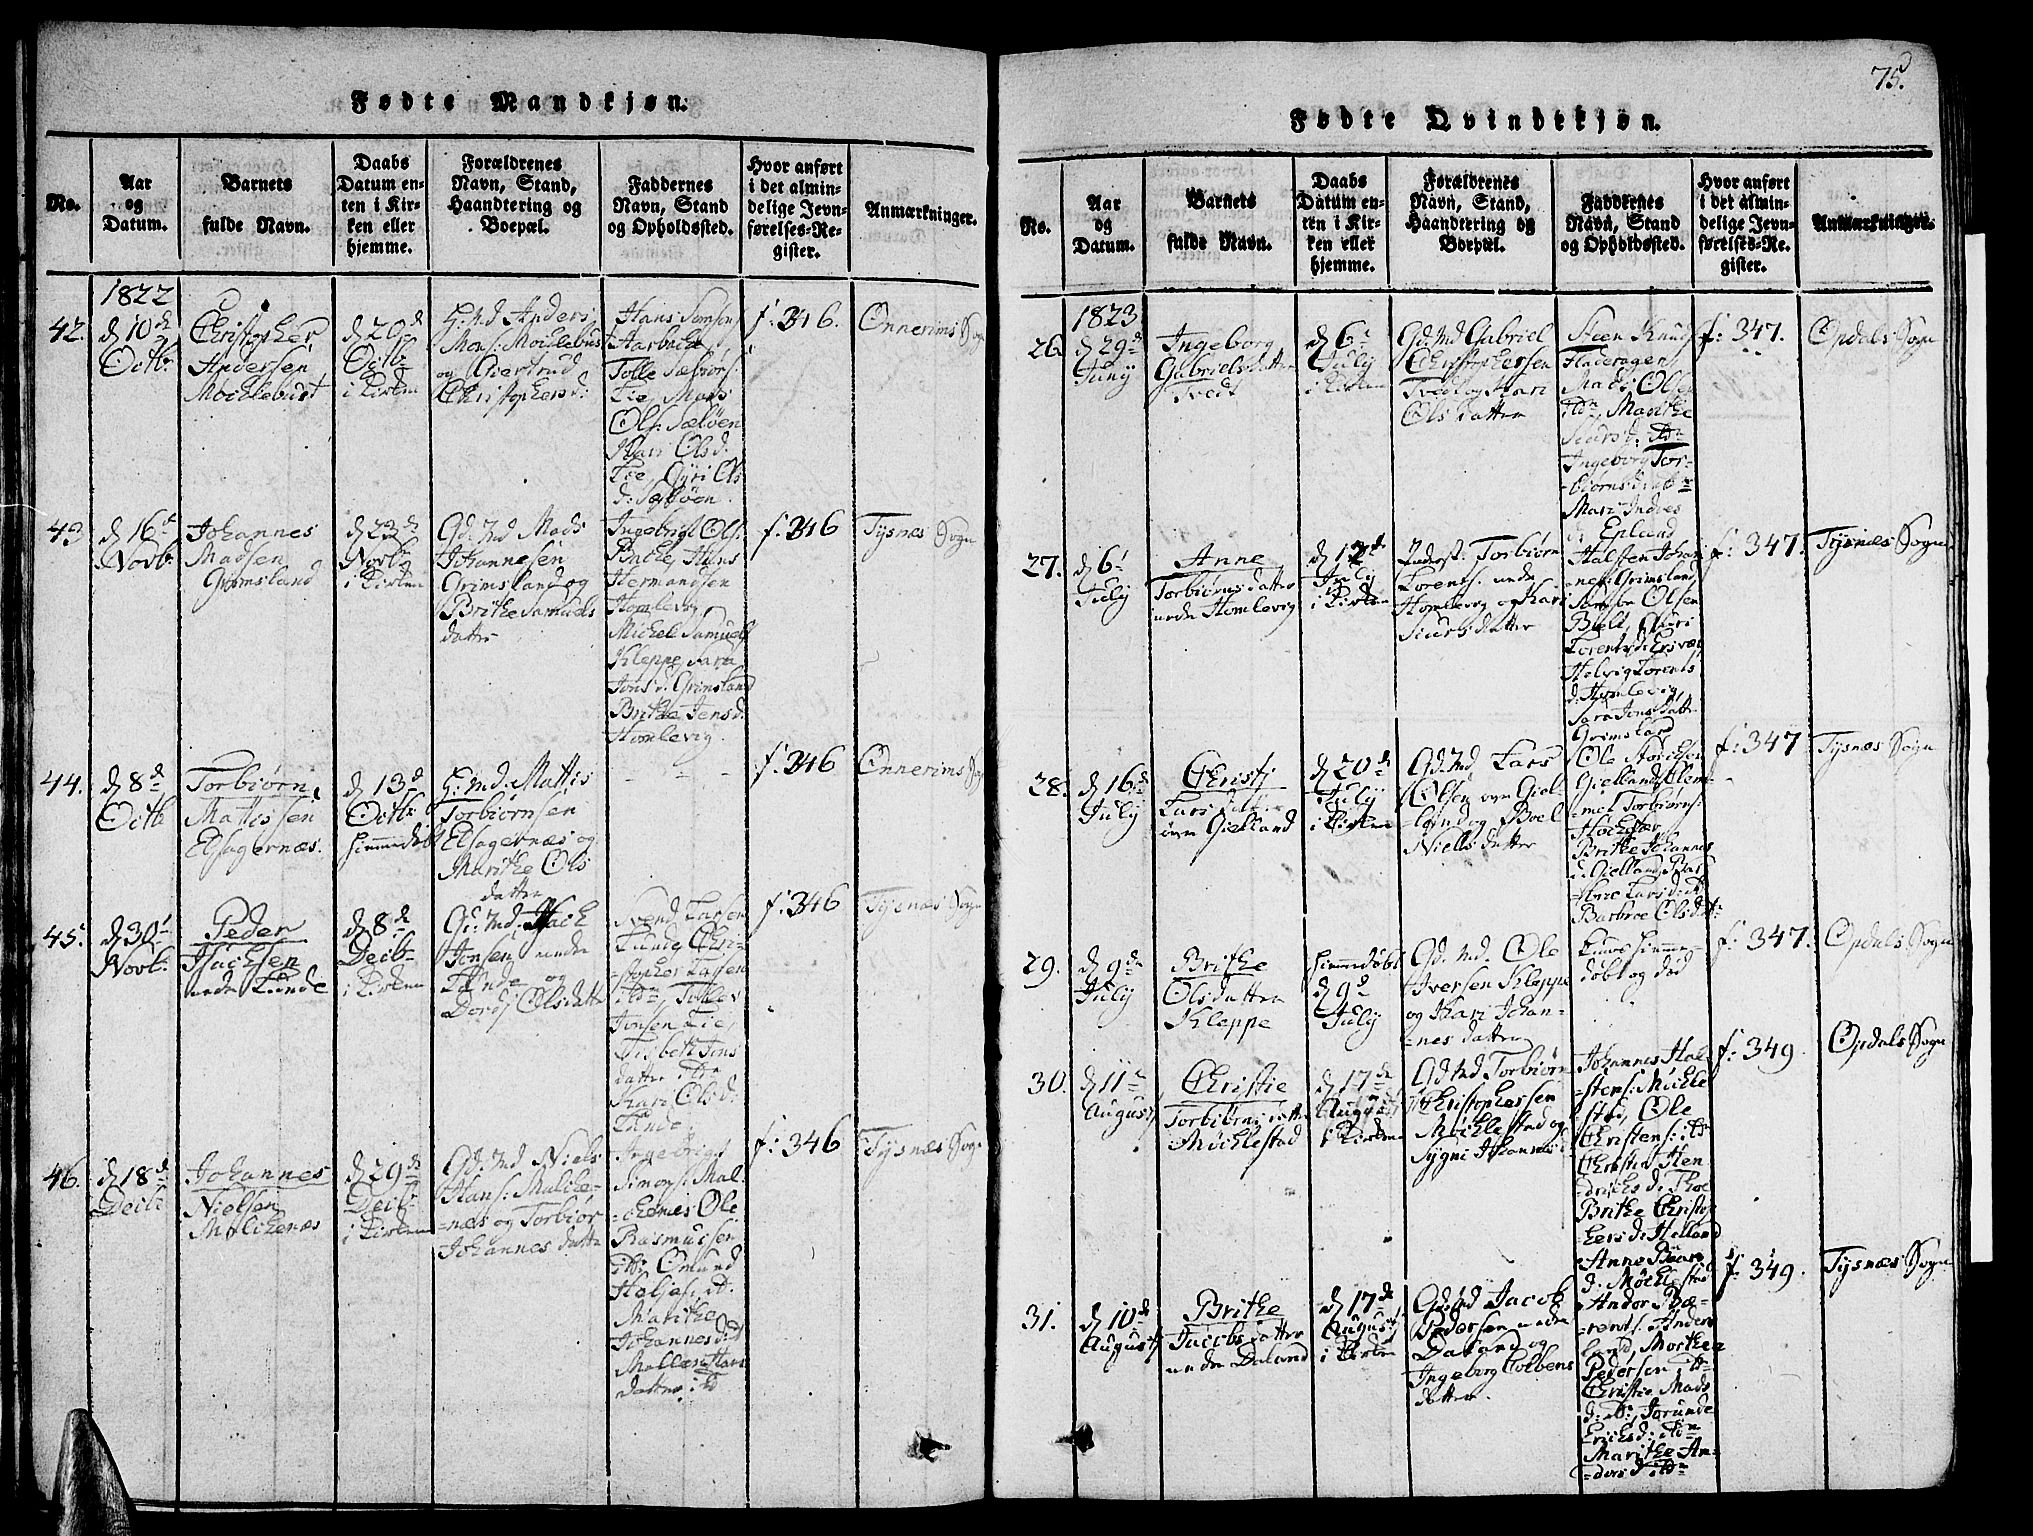 75.
Fødte Mandkjøn.
No.
Aar
og
Datum.
Barnets
fulde Navn.
Daabs
Datum en-
ten i Kir-
ken eller
hjemme.
Forældrenes
Navn, Stand,
Haandtering og
Boepæl.
Faddernes
Navn, Stand
og Opholdssted.
Hvor anført
i det almin-
delige Jevn-
førelses-Re-
gister.
Anmærkninger.
1822
42.
d 10de
Octbr
Christopher
Andersen
Möcklebust
d 20de
Octbr
i Kirken
G. Md Anders
Mons. Möcklebust
og Giertrud
Christophersd:
Hans
Tolle
Lie, Mons
Ols. Sælöen
Kari Olsd.
Lie, Gyri Ols
d.
f. 346.
Onnerims Sogn
43
d 16d
Novb.
Johannes
Madsen
Grimsland
d 23de
Novbr
i Kirken
Gd. Md Mads
Johannesen
Grimsland og
Brithe Samuels
datter
Ingebrigt Ols.
Hans
Hermandsen
Homlevig
Michel Samuels
Kleppe, Sara
Jons d. Grimsland
Brithe Jens d.
Homlevig.
f. 346
Tysnæs Sogn
44.
d 8de
Octb
Torbiörn
Mattissen
Elsagernæs.
d 13d
Octbr
hiemmedöbt
G. Md. Mattis
Torbiörnsen
Elsagernæs og
Marithe Ols
datter
- - -
f. 346
Onnerims Sogn
45.
d 30
Novb.
Peder
Hachsen
nedre Lunde
d 8de
Decb
i Kirken
G. Md. Hach
Jonsen nedre
Lunde og
Dordi Olsdatter
Svend Larsen
Lunde Chri-
stopher Larsen
ibdm, Tollev
Jonsen Lie,
Lisbeth Jens
datter
Kari Ols d.
Lunde
f. 346
Tysnæs Sogn
46.
d 18de
Decb
Johannes
Nielsen
Malichenæs
d 29de
Decb.
i Kirken
Gd. Md Niels
Hans: Maliche-
næs og Torbiör
Johannes datter
Ingebrigt
Simons. Mal-
ichenæs Ole
Rasmussen
ibd. Omund
Marithe
Johannes d.
Hans
datter ibd
f. 346
Tysnæs Sogn
Fødte Qvindekjøn.
No.
Aar
og
Datum.
Barnets
fulde Navn.
Daabs
Datum en-
ten i Kir-
ken eller
hjemme.
Forældrenes
Navn, Stand,
Haandtering og
Boepæl.
Faddernes
Navn, Stand
og Opholdssted.
Hvor anført
i det almin-
delige Jevn-
førelses-Re-
gister.
Anmærkninger.
1823
26.
d 29de
Juny
Ingeborg
Gabrielsdatter
Tvedt
d 6te
July
i Kirken
Gd. Md Gabriel
Christophersen
Tvedt og Kari
Ols datter
Steen Knuds.
Mads Olsen
Marithe
Siurs d.
Ingeborg Tor-
biörns d.
Mari
d. Epland
f. 347.
Opdals Sogn
27.
d 6te
July
Anne
Torbiörns datter
nedre Homlevig
d 12de
July
i Kirken
Torbiörn
Lorents. nedre
Homlevig og Kari
Siurs datter
Halsten Johan-
nes. Grimsland
Olsen
Lorents d.
Helvig Lorents
d. Homlevig
Sara Jons datter
Grimsland
f. 347.
Tysnæs Sogn
28.
d 16de
July
Christi
Lars datter
övre Gielland
d 20de
July
i Kirken
Gd. Md Lars
Olsen övre Giel-
land og Boel
Niels datter
Ole
Gielland, Clem-
met Torbiörns.
Brithe Johannes
d. Gielland,
Lars d.
Barbroe Ols d.
f. 347
Tysnæs Sogn
29.
d 9de
July
Brithe
Olsdatter
Kleppe
hiemmedöbt
d 9d
July
Gd. Md. Ole
Iversen Kleppe
og Kari Johan-
nes datter
hiemme-
döbt og död
f. 347.
Opdals Sogn
30.
d 11te
August
Christie
Torbiörns datter
Möchlestad
d 17de
August
i Kirken
Gd Md Torbiörn
Christophersen
Möchlestad og
Sygni Johannes d
Johannes Hal-
stens. Möchle-
stad, Ole
Christens.
Christi Hen-
drichs d.
Brithe Christop-
hers d. Helland
Anne
d. Möchlestad
f. 349.
Opdals Sogn
31.
d 10de
August
Brithe
Jacobs datter
nedre Daland
d 17de
August
i Kirken
Gd. Md Jacob
Pedersen nedre
Daland og
Ingeborg Colbens
datter.
Anders Bæ-
rents.
land, Morthen
Pedersen
Christi Mads
d. Jorunde
Erichs d.
Marithe An-
ders d.
f. 349.
Tysnæs Sogn